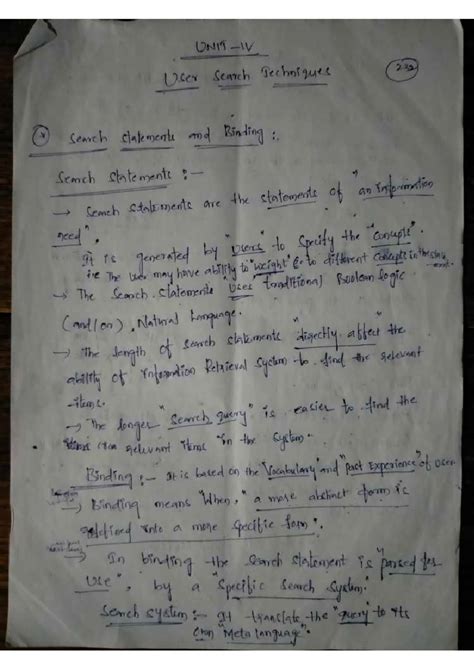 UNIT-IV
User Search Techniques
Search statements and Binding:.
Search statements :-
→ Search statements are the statements of "an Information
need".
It is generated by "users" to specify the "concepts".
i.e The user may have ability to "weight" to different concepts in the
→ The Search Statements uses Traditional Boolean logic
(and/or), Natural Language.
→ The length of search statements "directly affect" the
ability of Information Retrieval System to find the relevant
items.
→ The longer "search query" is easier to find the
relevant items in the system.
Binding :- It is based on the "Vocabulary" and "past Experience" of user.
→ Binding means "When," a more abstract form is
redefined into a more specific form".
→ In binding the search statement is "parsed for
use", by a "Specific Search System".
Search system :- It translate the "query" to its
own "Meta language".